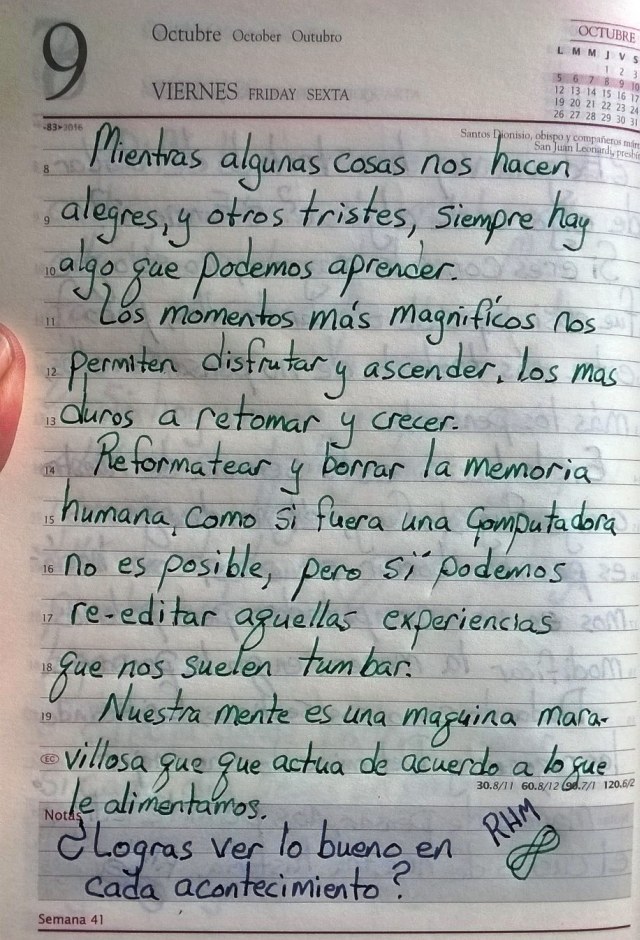 9
Octubre October Outubro
VIERNES FRIDAY SEXTA
OCTUBRE
L M M J V S
1 2 3
5 6 7 8 9 10
12 13 14 15 16 17
19 20 21 22 23 24
26 27 28 29 30 31
Santos Dionisio, obispo y compañeros
San Juan Leonardi,
8 Mientras algunas cosas nos hacen
9 alegres, y otros tristes, siempre hay
10 algo que podemos aprender.
11 Los momentos más magnifícos nos
12 permiten disfrutar y ascender, los mas
13 duros a retomar y crecer.
14 Reformatear y borrar la memoria
15 humana, como si fuera una computadora
16 no es posible, pero sí podemos
17 re-editar aquellas experiencias
18 que nos suelen tumbar.
19 Nuestra mente es una maquina mara-
EC villosa que que actua de acuerdo a lo que
30.8/11 60.8/12 90.7/1 120.6/2
le alimentamos.
Notas
¿Logras ver lo bueno en
cada acontecimiento?
RHM
Semana 41